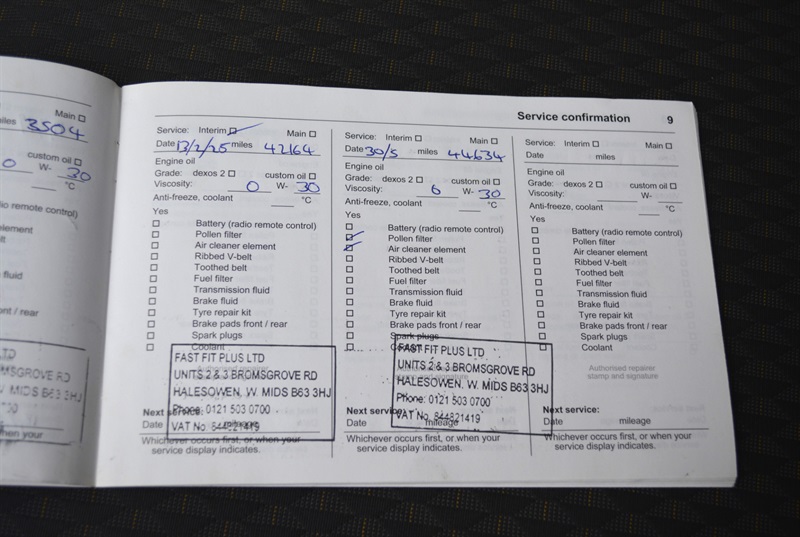 Main
3504
custom oil
0 W- 30
°C
io remote control)
element
lt
fluid
ont / rear
LTD
OMSGROVE RD
W. MIDS B63 3HJ
when your
Service confirmation 9
Service: Interim ✓ Main
Date 13/2/25 miles 42164
Engine oil
Grade: dexos 2 custom oil
Viscosity: 0 W- 30
Anti-freeze, coolant °C
Yes
Battery (radio remote control)
Pollen filter
Air cleaner element
Ribbed V-belt
Toothed belt
Fuel filter
Transmission fluid
Brake fluid
Tyre repair kit
Brake pads front / rear
Spark plugs
Coolant
FAST FIT PLUS LTD
UNITS 2 & 3 BROMSGROVE RD
HALESOWEN, W. MIDS B63 3HJ
Phone: 0121 503 0700
VAT No. 844821419
Next service:
Date mileage
Whichever occurs first, or when your
service display indicates.
Service: Interim Main
Date 30/5 miles 44634
Engine oil
Grade: dexos 2 custom oil
Viscosity: 6 W- 30
Anti-freeze, coolant °C
Yes
Battery (radio remote control)
✓ Pollen filter
✓ Air cleaner element
Ribbed V-belt
Toothed belt
Fuel filter
Transmission fluid
Brake fluid
Tyre repair kit
Brake pads front / rear
Spark plugs
Coolant
FAST FIT PLUS LTD
UNITS 2 & 3 BROMSGROVE RD
HALESOWEN, W. MIDS B63 3HJ
Phone: 0121 503 0700
VAT No. 844821419
Next service:
Date mileage
Whichever occurs first, or when your
service display indicates.
Service: Interim Main
Date miles
Engine oil
Grade: dexos 2 custom oil
Viscosity: W-
Anti-freeze, coolant °C
Yes
Battery (radio remote control)
Pollen filter
Air cleaner element
Ribbed V-belt
Toothed belt
Fuel filter
Transmission fluid
Brake fluid
Tyre repair kit
Brake pads front / rear
Spark plugs
Coolant
Authorised repairer
stamp and signature
Next service:
Date mileage
Whichever occurs first, or when your
service display indicates.